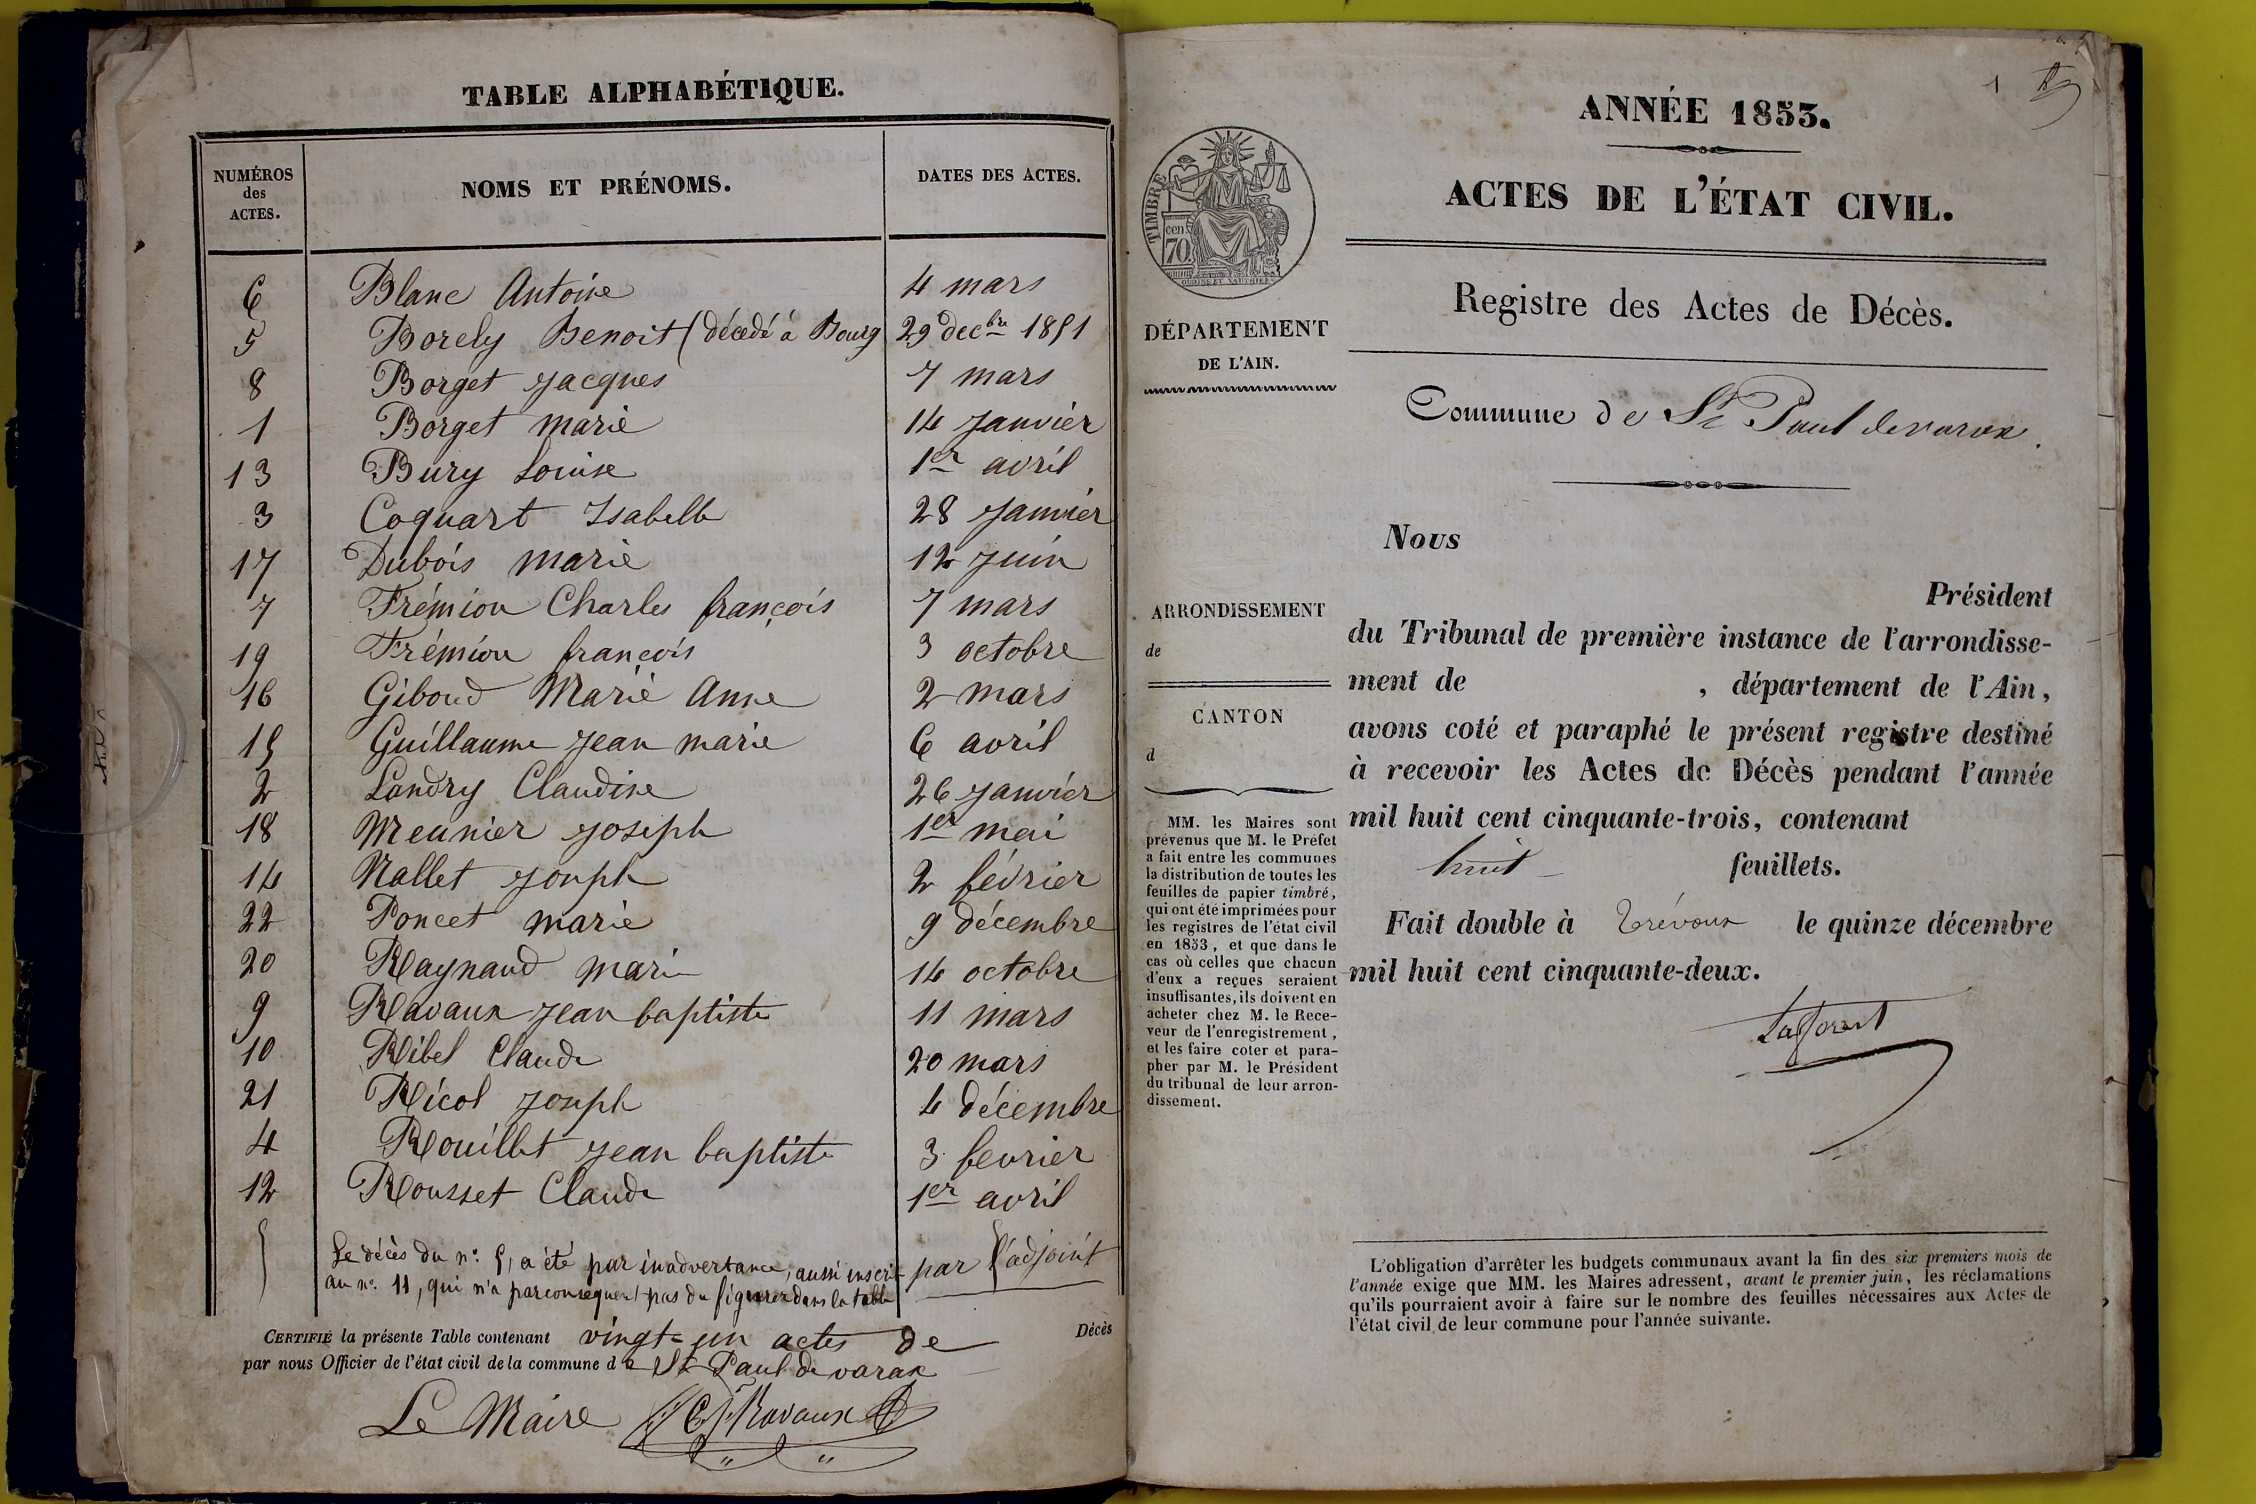 TABLE ALPHABÉTIQUE.
NUMÉROS
des
ACTES.
NOMS ET PRÉNOMS.
DATES DES ACTES.
6 Blanc Antoine 4 mars
5 Borely Benoit (décedé à Bourg 29 decbre 1851
8 Borget Jacques 7 mars
1 Borget marie 14 Janvier
13 Bury Louise 1er avril
3 Coquart Isabelle 28 Janvier
17 Dubois marie 12 Juin
7 Frémion Charles françois 7 mars
19 Frémion françois 3 octobre
16 Giboud Marie Anne 2 mars
15 Guillaume Jean marie 6 avril
2 Landry Claudine 26 Janvier
18 Meunier Joseph 1er mai
14 Nallet Joseph 2 février
22 Poncet marie 9 décembre
20 Raynaud marie 14 octobre
9 Ravaux Jean baptiste 11 mars
10 Ribel Claude 20 mars
21 Ricol Joseph 4 décembre
4 Rouillet Jean baptiste 3 fevrier
12 Rousset Claude 1er avril
Le décès du n° 5, a été par inadvertance, aussi inscrit par l'adjoint
au n° 11, qui n'a parconsequent pas du figurer dans la table
CERTIFIÉ la présente Table contenant vingt-un actes de Décès
par nous Officier de l'état civil de la commune de St Paul de varax
Le Maire Ravaux
1
ANNÉE 1853.
ACTES DE L'ÉTAT CIVIL.
Registre des Actes de Décès.
TIMBRE
70 cen
DÉPARTEMENT
DE L'AIN.
Commune de St Paul de varax.
ARRONDISSEMENT
de
CANTON
d
MM. les Maires sont
prévenus que M. le Préfet
a fait entre les communes
la distribution de toutes les
feuilles de papier timbré,
qui ont été imprimées pour
les registres de l'état civil
en 1853, et que dans le
cas où celles que chacun
d'eux a reçues seraient
insuffisantes, ils doivent en
acheter chez M. le Rece-
veur de l'enregistrement,
et les faire coter et para-
pher par M. le Président
du tribunal de leur arron-
dissement.
Nous
Président
du Tribunal de première instance de l'arrondisse-
ment de , département de l'Ain,
avons coté et paraphé le présent registre destiné
à recevoir les Actes de Décès pendant l'année
mil huit cent cinquante-trois, contenant
huit feuillets.
Fait double à Trévoux le quinze décembre
mil huit cent cinquante-deux.
L'obligation d'arrêter les budgets communaux avant la fin des six premiers mois de
l'année exige que MM. les Maires adressent, avant le premier juin, les réclamations
qu'ils pourraient avoir à faire sur le nombre des feuilles nécessaires aux Actes de
l'état civil de leur commune pour l'année suivante.